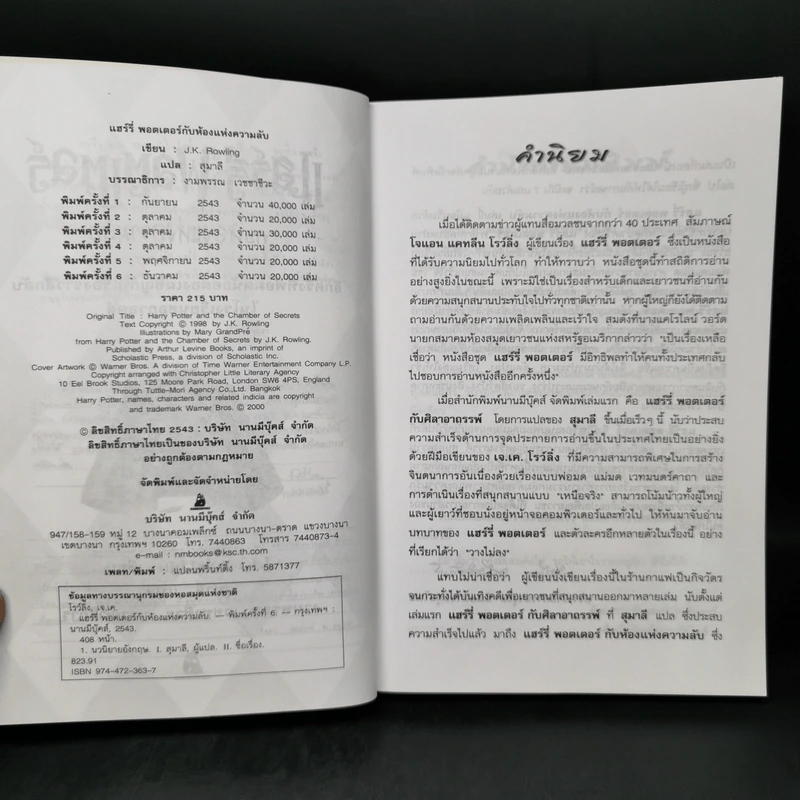 แฮร์รี่ พอตเตอร์กับห้องแห่งความลับ
เขียน : J.K. Rowling
แปล : สุมาลี
บรรณาธิการ : งามพรรณ เวชชาชีวะ
พิมพ์ครั้งที่ 1 : กันยายน 2543 จำนวน 40,000 เล่ม
พิมพ์ครั้งที่ 2 : ตุลาคม 2543 จำนวน 20,000 เล่ม
พิมพ์ครั้งที่ 3 : ตุลาคม 2543 จำนวน 30,000 เล่ม
พิมพ์ครั้งที่ 4 : ตุลาคม 2543 จำนวน 20,000 เล่ม
พิมพ์ครั้งที่ 5 : พฤศจิกายน 2543 จำนวน 20,000 เล่ม
พิมพ์ครั้งที่ 6 : ธันวาคม 2543 จำนวน 20,000 เล่ม
ราคา 215 บาท
Original Title : Harry Potter and the Chamber of Secrets
Text Copyright © 1998 by J.K. Rowling
Illustrations by Mary GrandPré
from Harry Potter and the Chamber of Secrets by J.K. Rowling.
Published by Arthur Levine Books, an imprint of
Scholastic Press, a division of Scholastic Inc.
Cover Artwork © Warner Bros. A Division of Time Warner Entertainment Company L.P.
Copyright arranged with Christopher Little Literary Agency
10 Eel Brook Studios, 125 Moore Park Road, London SW6 4PS, England
Through Tuttle-Mori Agency Co.,Ltd. Bangkok
Harry Potter, names, characters and related indicia are copyright
and trademark Warner Bros. © 2000
© ลิขสิทธิ์ภาษาไทย 2543 : บริษัท นานมีบุ๊คส์ จำกัด
ลิขสิทธิ์ภาษาไทยเป็นของบริษัท นานมีบุ๊คส์ จำกัด
อย่างถูกต้องตามกฎหมาย
จัดพิมพ์และจัดจำหน่ายโดย
บริษัท นานมีบุ๊คส์ จำกัด
947/158-159 หมู่ 12 บางนาคอมเพล็กซ์ ถนนบางนา-ตราด แขวงบางนา
เขตบางนา กรุงเทพฯ 10260 โทร. 7440863 โทรสาร 7440873-4
e-mail : nmbooks@ksc.th.com
เพลท/พิมพ์ : แปลนพริ้นท์ติ้ง โทร. 5871377
ข้อมูลทางบรรณานุกรมของหอสมุดแห่งชาติ
โรว์ลิ่ง, เจ.เค.
แฮร์รี่ พอตเตอร์กับห้องแห่งความลับ. -- พิมพ์ครั้งที่ 6. -- กรุงเทพฯ :
นานมีบุ๊คส์, 2543.
408 หน้า.
1. นวนิยายอังกฤษ. I. สุมาลี, ผู้แปล. II. ชื่อเรื่อง.
823.91
ISBN 974-472-363-7
คำนิยม
เมื่อได้ติดตามข่าวผู้แทนสื่อมวลชนจากกว่า 40 ประเทศ สัมภาษณ์
โจแอน แคทลีน โรว์ลิ่ง ผู้เขียนเรื่อง แฮร์รี่ พอตเตอร์ ซึ่งเป็นหนังสือ
ที่ได้รับความนิยมไปทั่วโลก ทำให้ทราบว่า หนังสือชุดนี้ทำสถิติการอ่าน
อย่างสูงยิ่งในขณะนี้ เพราะมิใช่เป็นเรื่องสำหรับเด็กและเยาวชนที่อ่านกัน
ด้วยความสนุกสนานประทับใจไปทั่วทุกชาติเท่านั้น หากผู้ใหญ่ก็ยังได้ติดตาม
ถามอ่านกันด้วยความเพลิดเพลินและเร้าใจ สมดังที่นางแคโรไลน์ วอร์ด
นายกสมาคมห้องสมุดเยาวชนแห่งสหรัฐอเมริกากล่าวว่า "เป็นเรื่องเหลือ
เชื่อว่า หนังสือชุด แฮร์รี่ พอตเตอร์ มีอิทธิพลทำให้คนทั้งประเทศกลับ
ไปชอบการอ่านหนังสืออีกครั้งหนึ่ง"
เมื่อสำนักพิมพ์นานมีบุ๊คส์ จัดพิมพ์เล่มแรก คือ แฮร์รี่ พอตเตอร์
กับศิลาอาถรรพ์ โดยการแปลของ สุมาลี ขึ้นเมื่อเร็วๆ นี้ นับว่าประสบ
ความสำเร็จด้านการจุดประกายการอ่านขึ้นในประเทศไทยเป็นอย่างยิ่ง
ด้วยฝีมือเขียนของ เจ.เค. โรว์ลิ่ง ที่มีความสามารถพิเศษในการสร้าง
จินตนาการอันเนื่องด้วยเรื่องแบบพ่อมด แม่มด เวทมนตร์คาถา และ
การดำเนินเรื่องที่สนุกสนานแบบ "เหนือจริง" สามารถโน้มน้าวทั้งผู้ใหญ่
และผู้เยาว์ที่ชอบนั่งอยู่หน้าจอคอมพิวเตอร์และทั่วไป ให้หันมาจับอ่าน
บทบาทของ แฮร์รี่ พอตเตอร์ และตัวละครอีกหลายตัวในเรื่องนี้ อย่าง
ที่เรียกได้ว่า "วางไม่ลง"
แทบไม่น่าเชื่อว่า ผู้เขียนนั่งเขียนเรื่องนี้ในร้านกาแฟเป็นกิจวัตร
จนกระทั่งได้บันเทิงคดีเพื่อเยาวชนที่สนุกสนานออกมาหลายเล่ม นับตั้งแต่
เล่มแรก แฮร์รี่ พอตเตอร์ กับศิลาอาถรรพ์ ที่ สุมาลี แปล ซึ่งประสบ
ความสำเร็จไปแล้ว มาถึง แฮร์รี่ พอตเตอร์ กับห้องแห่งความลับ ซึ่ง